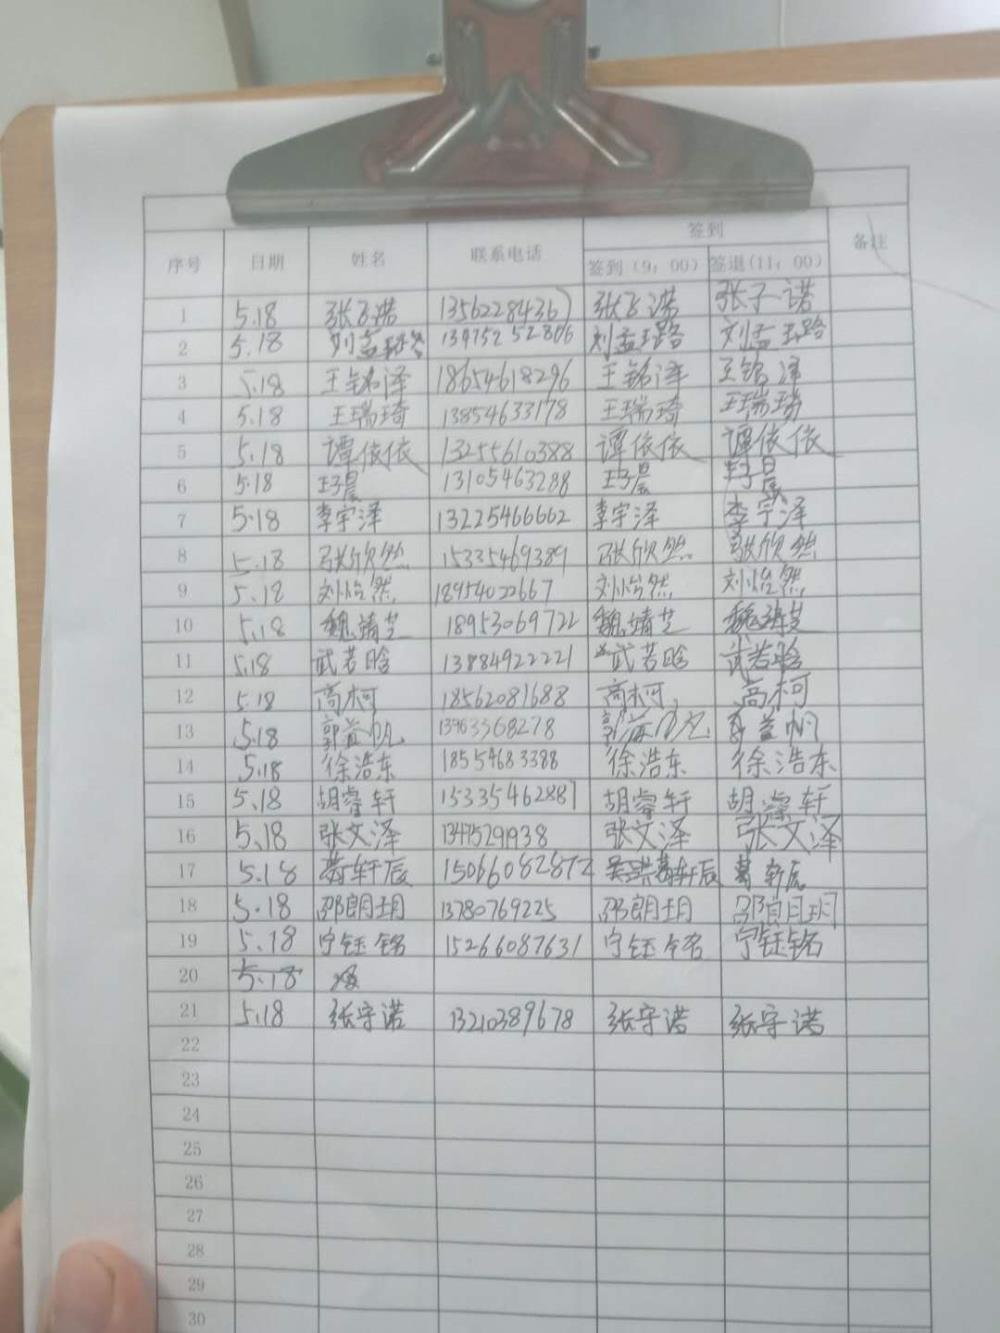 签到
序号 日期 姓名 联系电话 签到（9：00） 签退（11：00） 备注
1 5.18 张飞诺 13562284367 张飞诺 张子诺
2 5.18 刘孟璐 13475252806 刘孟璐 刘孟璐
3 5.18 王铭泽 18654618296 王铭泽 王铭泽
4 5.18 王瑞琦 13854633178 王瑞琦 王瑞琦
5 5.18 谭依依 13255610388 谭依依 谭依依
6 5.18 13105463288
7 5.18 李宇泽 13225466662 李宇泽 李宇泽
8 5.18 张欣然 15335469389 张欣然 张欣然
9 5.18 刘怡然 18954022667 刘怡然 刘怡然
10 5.18 魏靖芝 18953069722 魏靖芝 魏靖芝
11 5.18 武若晗 13884922221 武若晗 武若晗
12 5.18 高柯 18562081688 高柯 高柯
13 5.18 郭益帆 13963368278 郭益帆 郭益帆
14 5.18 徐浩东 18554683388 徐浩东 徐浩东
15 5.18 胡睿轩 15335462887 胡睿轩 胡睿轩
16 5.18 张文泽 13475291938 张文泽 张文泽
17 5.18 葛轩辰 15066082872 葛轩辰 葛轩辰
18 5.18 邵朗玥 13780769225 邵朗玥 邵朗玥
19 5.18 宁钰铭 15266087631 宁钰铭 宁钰铭
20 5.18
21 5.18 张宇诺 13210389678 张宇诺 张宇诺
22
23
24
25
26
27
28
29
30